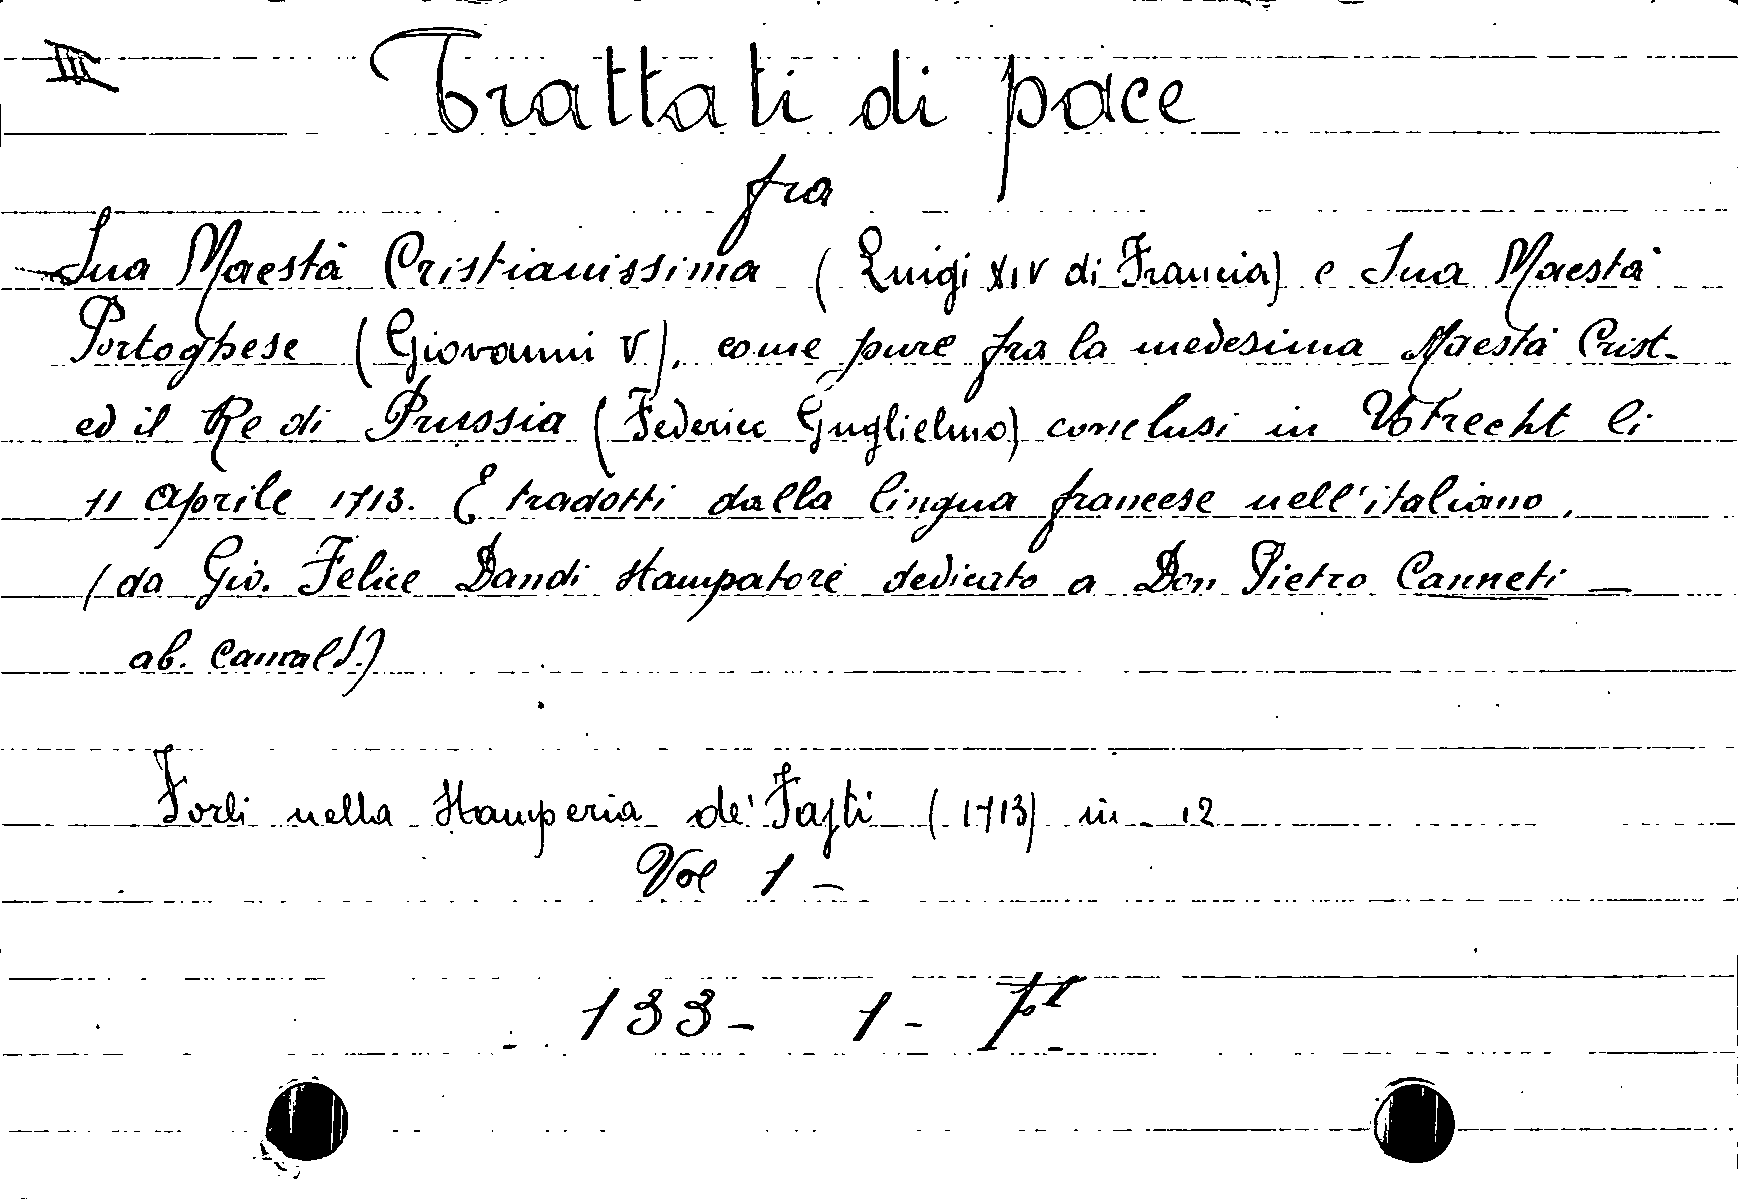 III
Trattati di pace
fra
Sua Maestà Cristianissima (Luigi XIV di Francia) e Sua Maestà
Portoghese (Giovanni V), come pure fra la medesima Maestà Crist.
ed il Re di Prussia (Federico Guglielmo) conclusi in Utrecht li
11 Aprile 1713. E tradotti dalla lingua francese nell'italiano,
(da Gio. Felice Dandi stampatore dedicato a Don Pietro Canneti —
ab. camald.)
Forlì nella Stamperia de' Fasti (1713) in 12
Vol 1 –
133 – 1 –